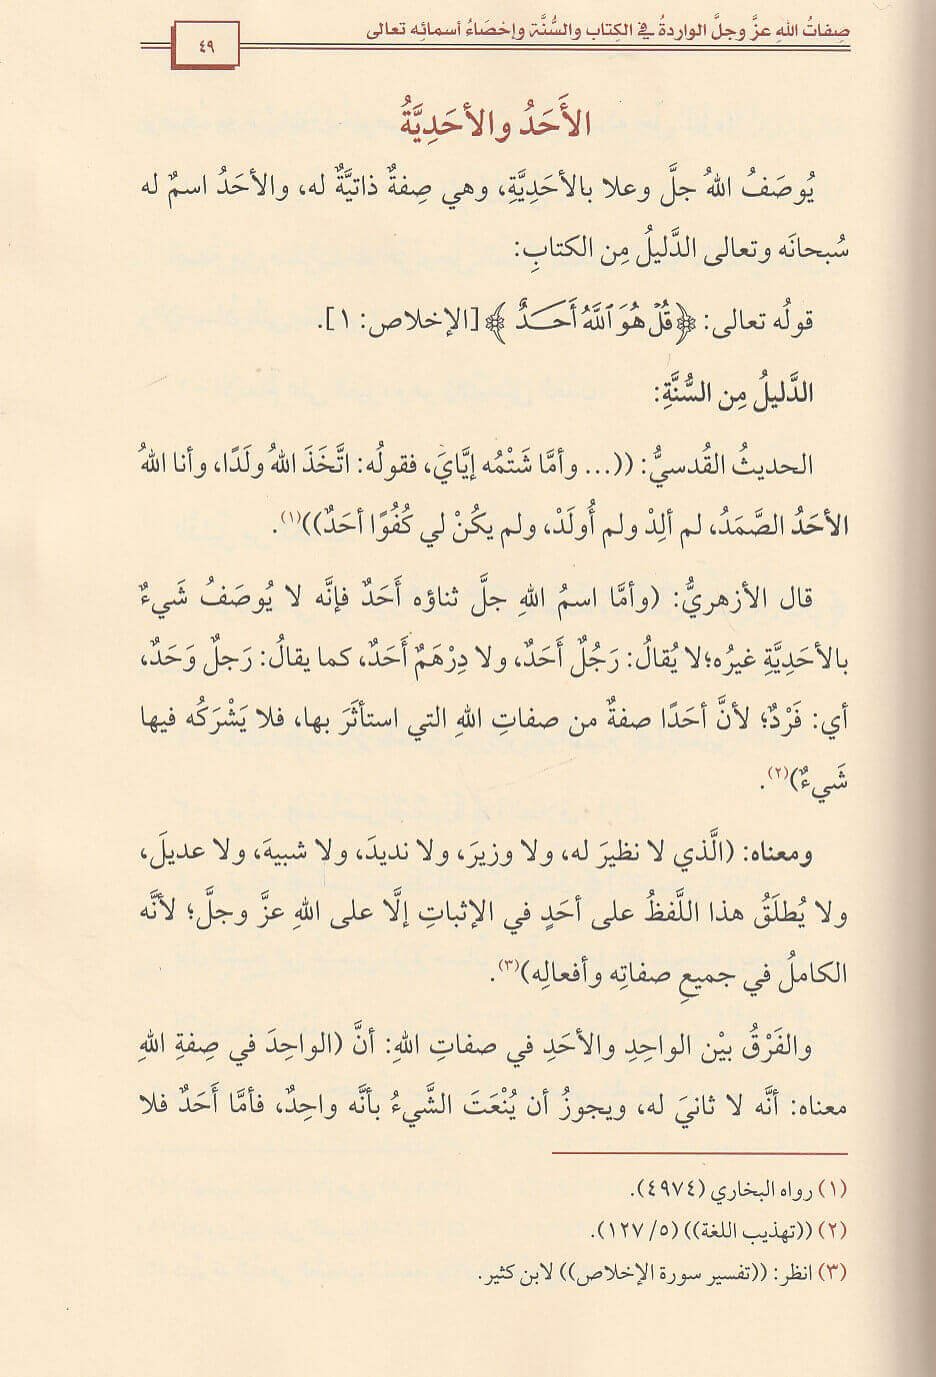 صِفاتُ اللهِ عزَّ وجلَّ الواردةُ في الكِتابِ والسُّنَّة وإحْصَاءُ أسمائِه تعالى
٤٩
الأَحَدُ والأحَدِيَّةُ
يُوصَفُ اللهُ جلَّ وعلا بالأحَدِيَّةِ، وهي صِفةٌ ذاتيَّةٌ له، والأحَدُ اسمٌ له
سُبحانَه وتعالى الدَّليلُ مِن الكتابِ:
قولُه تعالى: ﴿قُلْ هُوَ ٱللَّهُ أَحَدٌ﴾ [الإخلاص: ١].
الدَّليلُ مِن السُّنَّةِ:
الحديثُ القُدسيُّ: ((... وأمَّا شَتْمُه إيَّايَ، فقولُه: اتَّخَذَ اللهُ ولَدًا، وأنا اللهُ
الأحَدُ الصَّمَدُ، لم ألِدْ ولم أُولَدْ، ولم يكُنْ لي كُفُوًا أحَدٌ))(١).
قال الأزهريُّ: (وأمَّا اسمُ اللهِ جلَّ ثناؤه أَحَدٌ فإنَّه لا يُوصَفُ شَيءٌ
بالأحَدِيَّةِ غيرُه؛لا يُقالُ: رَجُلٌ أَحَدٌ، ولا دِرْهَمٌ أَحَدٌ، كما يقالُ: رَجلٌ وَحَدٌ،
أي: فَرْدٌ؛ لأنَّ أحَدًا صفةٌ من صفاتِ اللهِ التي استأثَرَ بها، فلا يَشْرَكُه فيها
شَيءٌ)(٢).
ومعناه: (الَّذي لا نظيرَ له، ولا وزيرَ، ولا نديدَ، ولا شبيهَ، ولا عديلَ،
ولا يُطلَقُ هذا اللَّفظُ على أحَدٍ في الإثباتِ إلَّا على اللهِ عزَّ وجلَّ؛ لأنَّه
الكاملُ في جميعِ صفاتِه وأفعالِه)(٣).
والفَرْقُ بيْن الواحِدِ والأحَدِ في صفاتِ اللهِ: أنَّ (الواحِدَ في صِفةِ اللهِ
معناه: أنَّه لا ثانيَ له، ويجوزُ أن يُنْعَتَ الشَّيءُ بأنَّه واحِدٌ، فأمَّا أَحَدٌ فلا
(١) رواه البخاري (٤٩٧٤).
(٢) ((تهذيب اللغة)) (٥/ ١٢٧).
(٣) انظر: ((تفسير سورة الإخلاص)) لابن كثير.